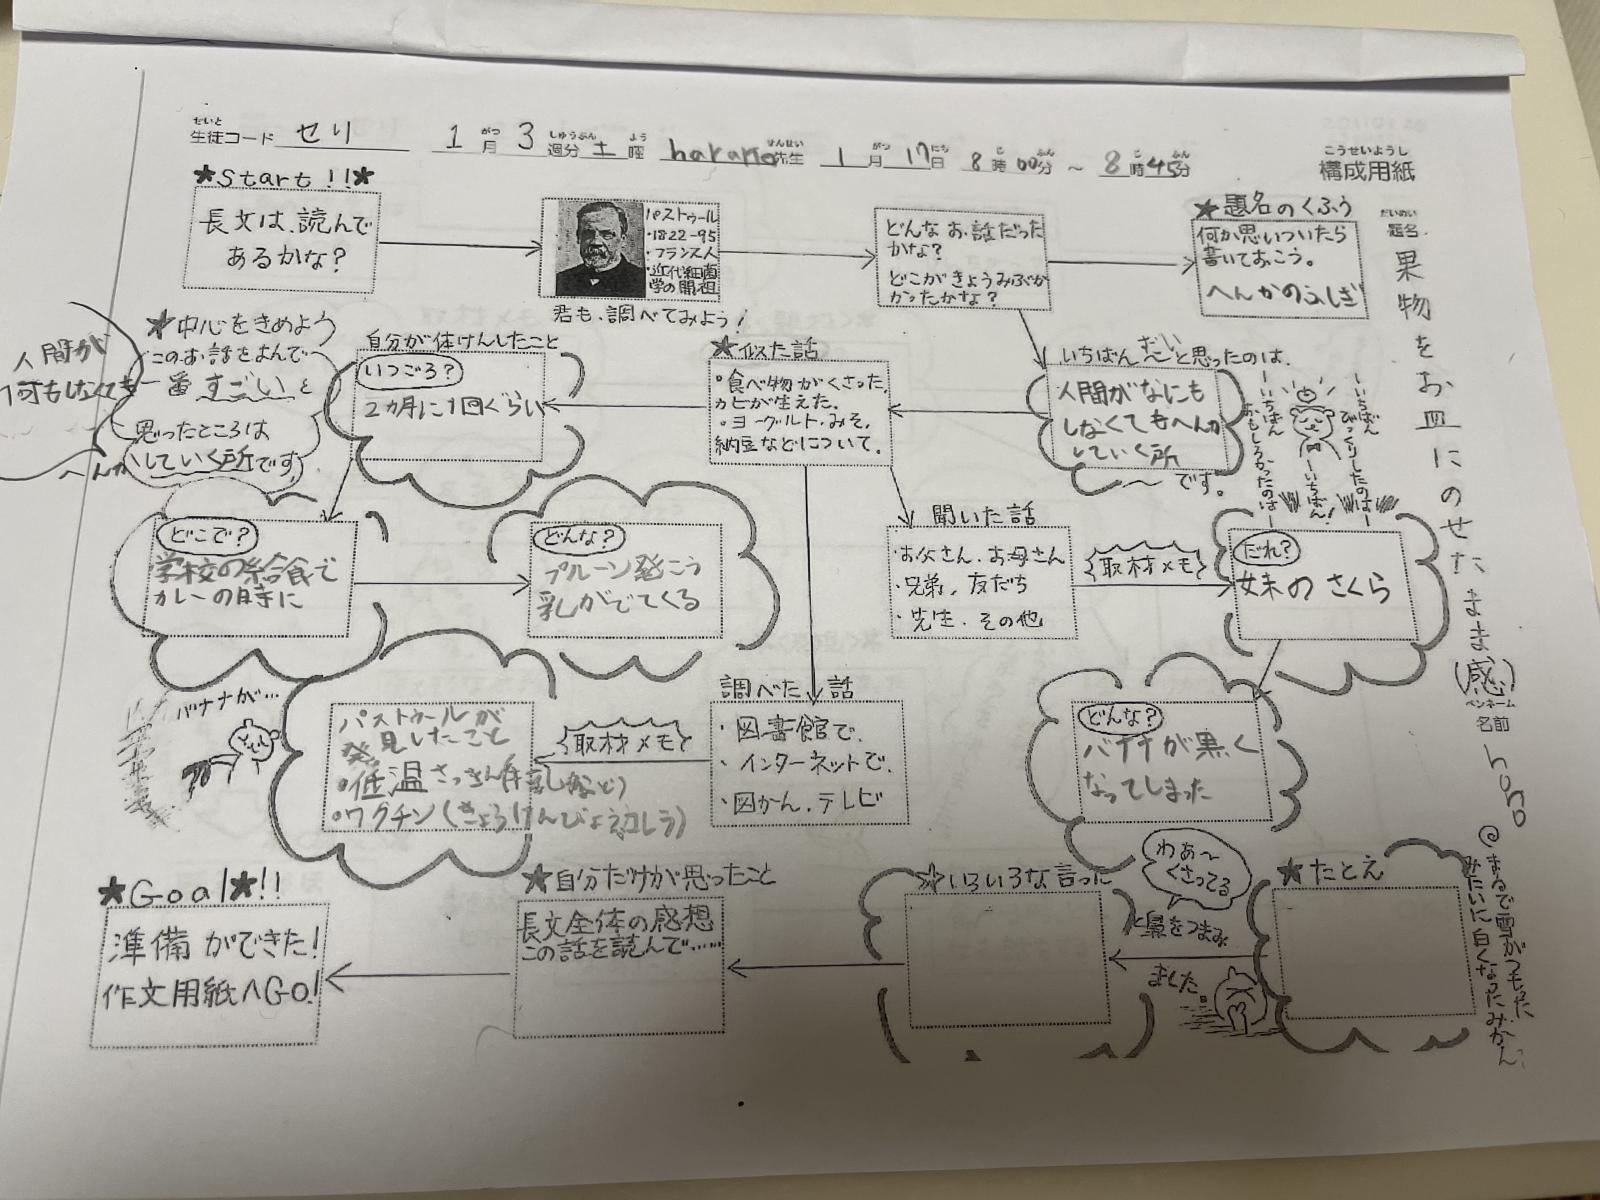 せいと
生徒コード せり 1月 3週分 土曜 harano先生 1月17日 8時00分～8時45分
がつ しゅうぶん よう せんせい がつ にち じ ふん じ ふん
こうせいようし
構成用紙
だいめい
題名
果物をお皿にのせたまま(感)
ペンネーム
名前
hono
★Start!!★
長文は、読んで
あるかな?
パストゥール
・1822-95
・フランス人
・近代細菌
学の開祖
君も、調べてみよう!
どんなお話だった
かな?
どこがきょうみぶか
かったかな?
★題名のくふう
何か思いついたら
書いておこう。
へんかのふしぎ
いちばん～と思ったのは、
だい
人間がなにも
しなくてもへんか
していく所
～です。
ーいちばん
おもしろかったのはー
ーいちばん!
ーいちばん
びっくりしたのはー
★似た話
・食べ物がくさった、
カビが生えた。
・ヨーグルト・みそ、
納豆などについて。
自分が体けんしたこと
いつごろ?
2カ月に1回ぐらい
★中心をきめよう
このお話をよんで
一番すごいと
思ったところは
していく所です。
人間が
何もしなくても
へんか
どこで?
学校の給食で
カレーの時に
どんな?
プルーン発こう
乳がでてくる
聞いた話
・お父さん、お母さん
・兄弟、友だち
・先生、その他
取材メモ
だれ?
妹のさくら
どんな?
バナナが黒く
なってしまった
調べた話
・図書館で、
・インターネットで、
・図かん、テレビ
取材メモ
パストゥールが
発見したこと
・低温さっきん(牛乳など)
・ワクチン(きょうけんびょう、コレラ)
バナナが…
★たとえ
@まるで雪がつもった
みたいに白くなったみかん
わぁ～
くさってる
と鼻をつまみ
ました。
☆いろいろな言った
★自分だけが思ったこと
長文全体の感想
この話を読んで……
★Goal★!!
準備ができた!
作文用紙へGo!